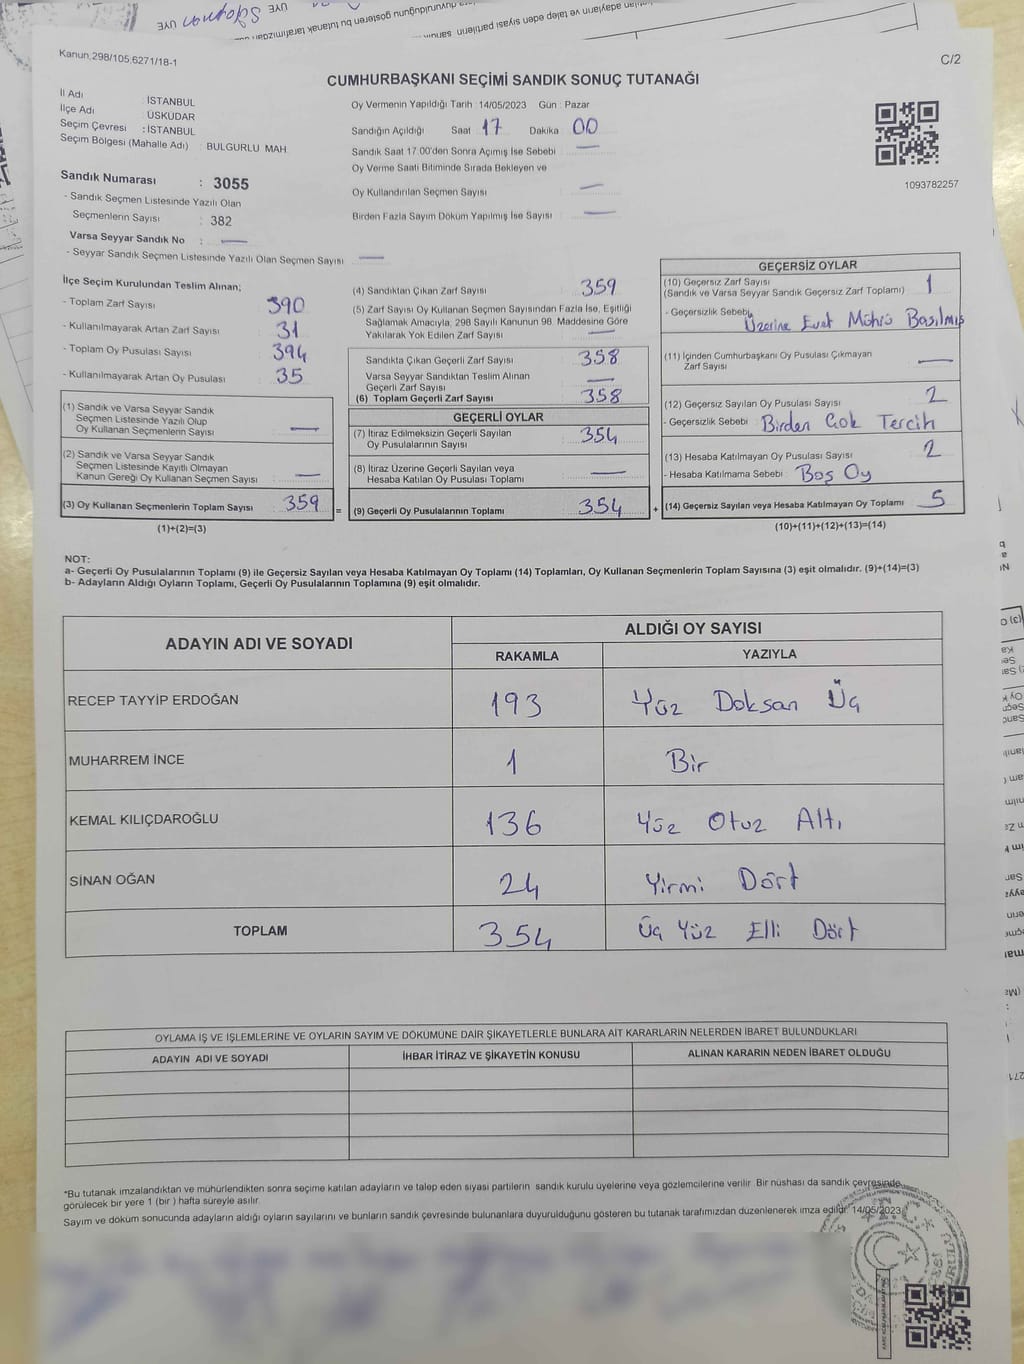 ÜYE
ÜYE
Kanun,298/105,6271/18-1
C/2
CUMHURBAŞKANI SEÇİMİ SANDIK SONUÇ TUTANAĞI
İl Adı : İSTANBUL
İlçe Adı : ÜSKÜDAR
Seçim Çevresi : İSTANBUL
Seçim Bölgesi (Mahalle Adı) : BULGURLU MAH.
Oy Vermenin Yapıldığı Tarih : 14/05/2023 Gün : Pazar
Sandığın Açıldığı Saat 17 Dakika 00
Sandık Saat 17:00'den Sonra Açımış İse Sebebi —
Oy Verme Saati Bitiminde Sırada Bekleyen ve
Oy Kullandırılan Seçmen Sayısı —
Birden Fazla Sayım Döküm Yapılmış İse Sayısı —
1093782257
Sandık Numarası : 3055
- Sandık Seçmen Listesinde Yazılı Olan
Seçmenlerin Sayısı : 382
Varsa Seyyar Sandık No : —
- Seyyar Sandık Seçmen Listesinde Yazılı Olan Seçmen Sayısı —
İlçe Seçim Kurulundan Teslim Alınan;
- Toplam Zarf Sayısı : 390
- Kullanılmayarak Artan Zarf Sayısı : 31
- Toplam Oy Pusulası Sayısı : 394
- Kullanılmayarak Artan Oy Pusulası : 35
(1) Sandık ve Varsa Seyyar Sandık
Seçmen Listesinde Yazılı Olup
Oy Kullanan Seçmenlerin Sayısı : —
(2) Sandık ve Varsa Seyyar Sandık
Seçmen Listesinde Kayıtlı Olmayan
Kanun Gereği Oy Kullanan Seçmen Sayısı : —
(3) Oy Kullanan Seçmenlerin Toplam Sayısı : 359
(1)+(2)=(3)
=
(4) Sandıktan Çıkan Zarf Sayısı : 359
(5) Zarf Sayısı Oy Kullanan Seçmen Sayısından Fazla İse, Eşitliği
Sağlamak Amacıyla, 298 Sayılı Kanunun 98. Maddesine Göre
Yakılarak Yok Edilen Zarf Sayısı : —
Sandıkta Çıkan Geçerli Zarf Sayısı : 358
Varsa Seyyar Sandıktan Teslim Alınan
Geçerli Zarf Sayısı : —
(6) Toplam Geçerli Zarf Sayısı : 358
GEÇERLİ OYLAR
(7) İtiraz Edilmeksizin Geçerli Sayılan
Oy Pusulalarının Sayısı : 354
(8) İtiraz Üzerine Geçerli Sayılan veya
Hesaba Katılan Oy Pusulası Toplamı : —
(9) Geçerli Oy Pusulalarının Toplamı : 354
+
GEÇERSİZ OYLAR
(10) Geçersiz Zarf Sayısı
(Sandık ve Varsa Seyyar Sandık Geçersiz Zarf Toplamı) : 1
- Geçersizlik Sebebi : Üzerine Evet Mührü Basılmış
(11) İçinden Cumhurbaşkanı Oy Pusulası Çıkmayan
Zarf Sayısı : —
(12) Geçersiz Sayılan Oy Pusulası Sayısı : 2
- Geçersizlik Sebebi : Birden Çok Tercih
(13) Hesaba Katılmayan Oy Pusulası Sayısı : 2
- Hesaba Katılmama Sebebi : Boş Oy
(14) Geçersiz Sayılan veya Hesaba Katılmayan Oy Toplamı : 5
(10)+(11)+(12)+(13)=(14)
NOT:
a- Geçerli Oy Pusulalarının Toplamı (9) ile Geçersiz Sayılan veya Hesaba Katılmayan Oy Toplamı (14) Toplamları, Oy Kullanan Seçmenlerin Toplam Sayısına (3) eşit olmalıdır. (9)+(14)=(3)
b- Adayların Aldığı Oyların Toplamı, Geçerli Oy Pusulalarının Toplamına (9) eşit olmalıdır.
ADAYIN ADI VE SOYADI
ALDIĞI OY SAYISI
RAKAMLA YAZIYLA
RECEP TAYYİP ERDOĞAN 193 Yüz Doksan Üç
MUHARREM İNCE 1 Bir
KEMAL KILIÇDAROĞLU 136 Yüz Otuz Altı
SİNAN OĞAN 24 Yirmi Dört
TOPLAM 354 Üç Yüz Elli Dört
OYLAMA İŞ VE İŞLEMLERİNE VE OYLARIN SAYIM VE DÖKÜMÜNE DAİR ŞİKAYETLERLE BUNLARA AİT KARARLARIN NELERDEN İBARET BULUNDUKLARI
ADAYIN ADI VE SOYADI İHBAR İTİRAZ VE ŞİKAYETİN KONUSU ALINAN KARARIN NEDEN İBARET OLDUĞU
*Bu tutanak imzalandıktan ve mühürlendikten sonra seçime katılan adayların ve talep eden siyasi partilerin sandık kurulu üyelerine veya gözlemcilerine verilir. Bir nüshası da sandık çevresinde
görülecek bir yere 1 (bir ) hafta süreyle asılır.
Sayım ve döküm sonucunda adayların aldığı oyların sayılarını ve bunların sandık çevresinde bulunanlara duyurulduğunu gösteren bu tutanak tarafımızdan düzenlenerek imza edildi. 14/05/2023
T.C.